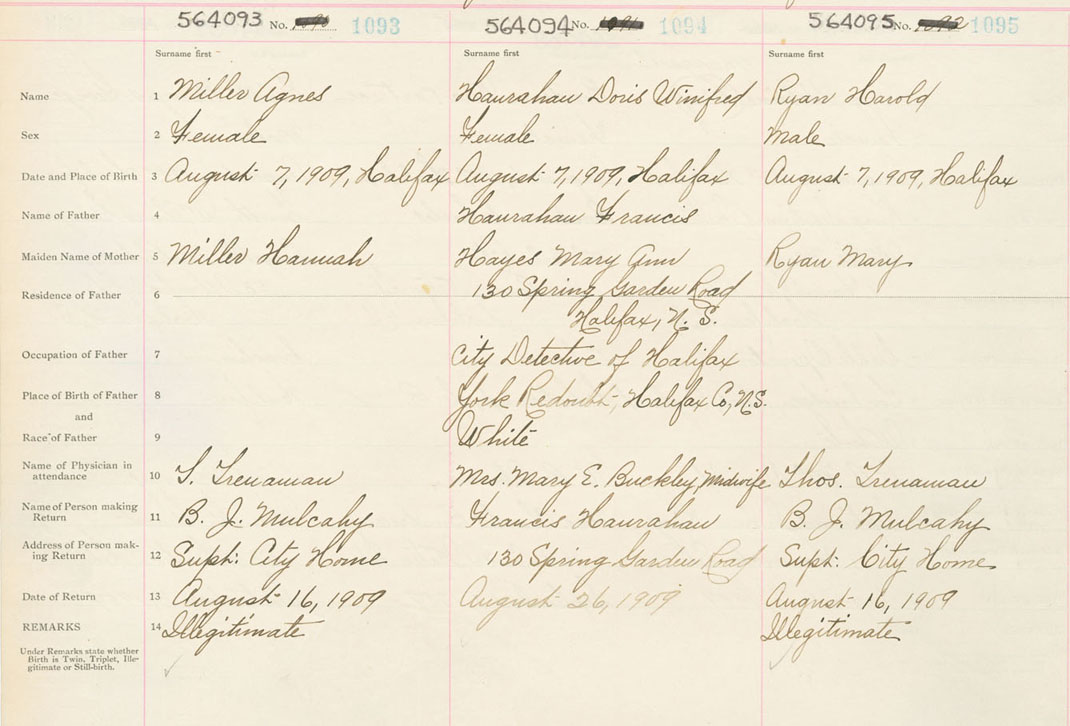 564093 No. 1093
564094 No. 1094
564095 No. 1092 1095
Surname first Surname first Surname first
Name 1 Miller Agnes Hanrahan Doris Winifred Ryan Harold
Sex 2 Female Female Male
Date and Place of Birth 3 August 7, 1909, Halifax August 7, 1909, Halifax August 7, 1909, Halifax
Name of Father 4 Hanrahan Francis
Maiden Name of Mother 5 Miller Hannah Hayes Mary Ann Ryan Mary
Residence of Father 6 130 Spring Garden Road
Halifax, N. S.
Occupation of Father 7 City Detective of Halifax
Place of Birth of Father 8 York Redoubt, Halifax Co, N.S.
and
Race of Father 9 White
Name of Physician in
attendance 10 T. Trenaman Mrs. Mary E. Buckley, Midwife Thos. Trenaman
Name of Person making
Return 11 B. J. Mulcahy Francis Hanrahan B. J. Mulcahy
Address of Person mak-
ing Return 12 Supt. City Home 130 Spring Garden Road Supt. City Home
Date of Return 13 August 16, 1909 August 26, 1909 August 16, 1909
REMARKS 14 Illegitimate Illegitimate
Under Remarks state whether
Birth is Twin, Triplet, Ille-
gitimate or Still-birth.